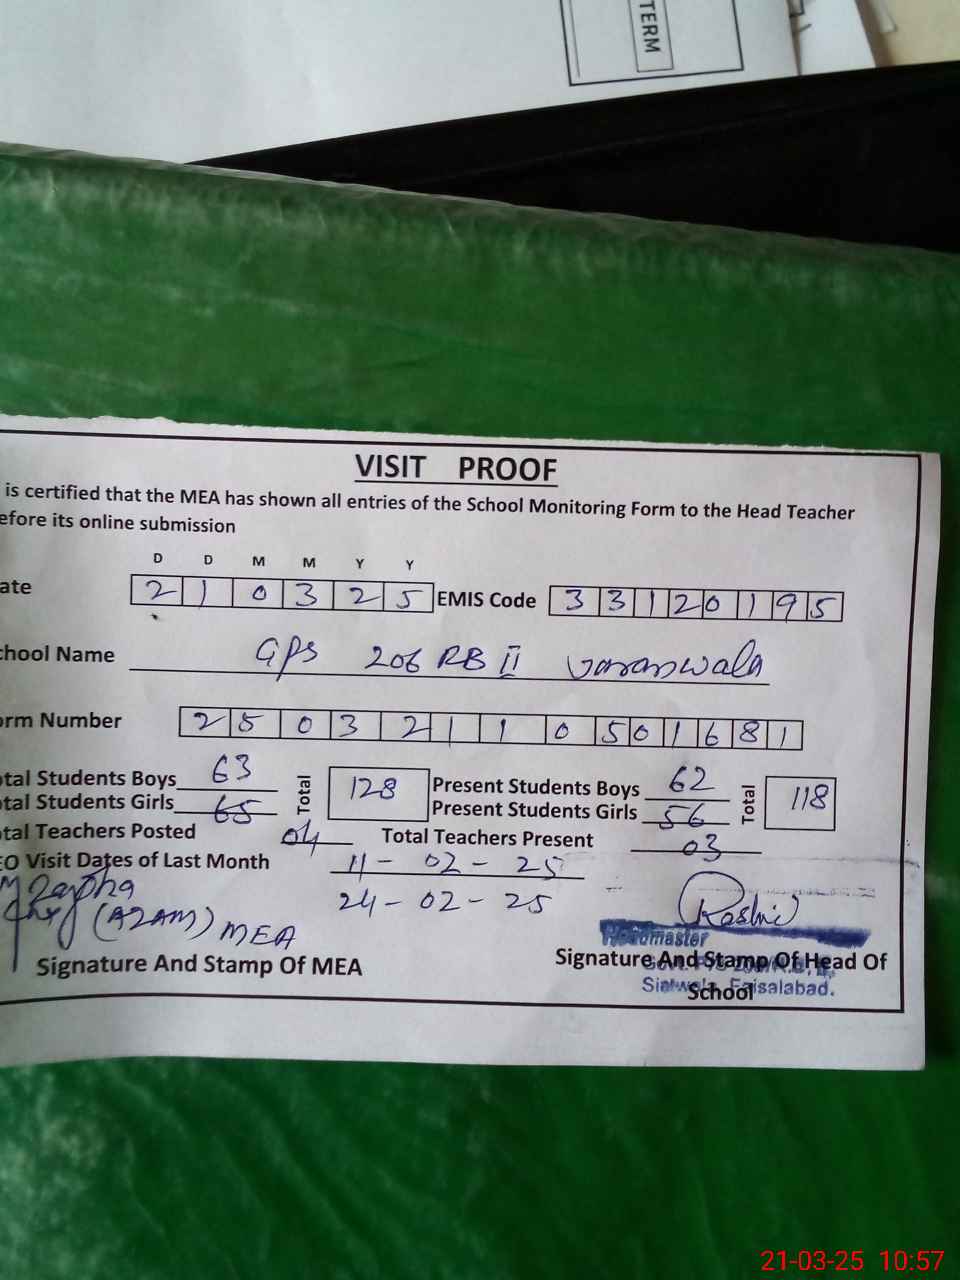 TERM
VISIT PROOF
is certified that the MEA has shown all entries of the School Monitoring Form to the Head Teacher
efore its online submission
D D M M Y Y
ate 2 1 0 3 2 5 EMIS Code 3 3 1 2 0 1 9 5
chool Name GPS 206 RB II
orm Number 2 5 0 3 2 1 1 0 5 0 1 6 8 1
otal Students Boys 63 Total 128 Present Students Boys 62 Total 118
otal Students Girls 65 Present Students Girls 56
otal Teachers Posted 04 Total Teachers Present 03
EO Visit Dates of Last Month 11-02-25
24-02-25
(AZAM) MEA
Rashid
Headmaster
Signature And Stamp Of MEA
Signature And Stamp Of Head Of
School
Faisalabad.
21-03-25 10:57